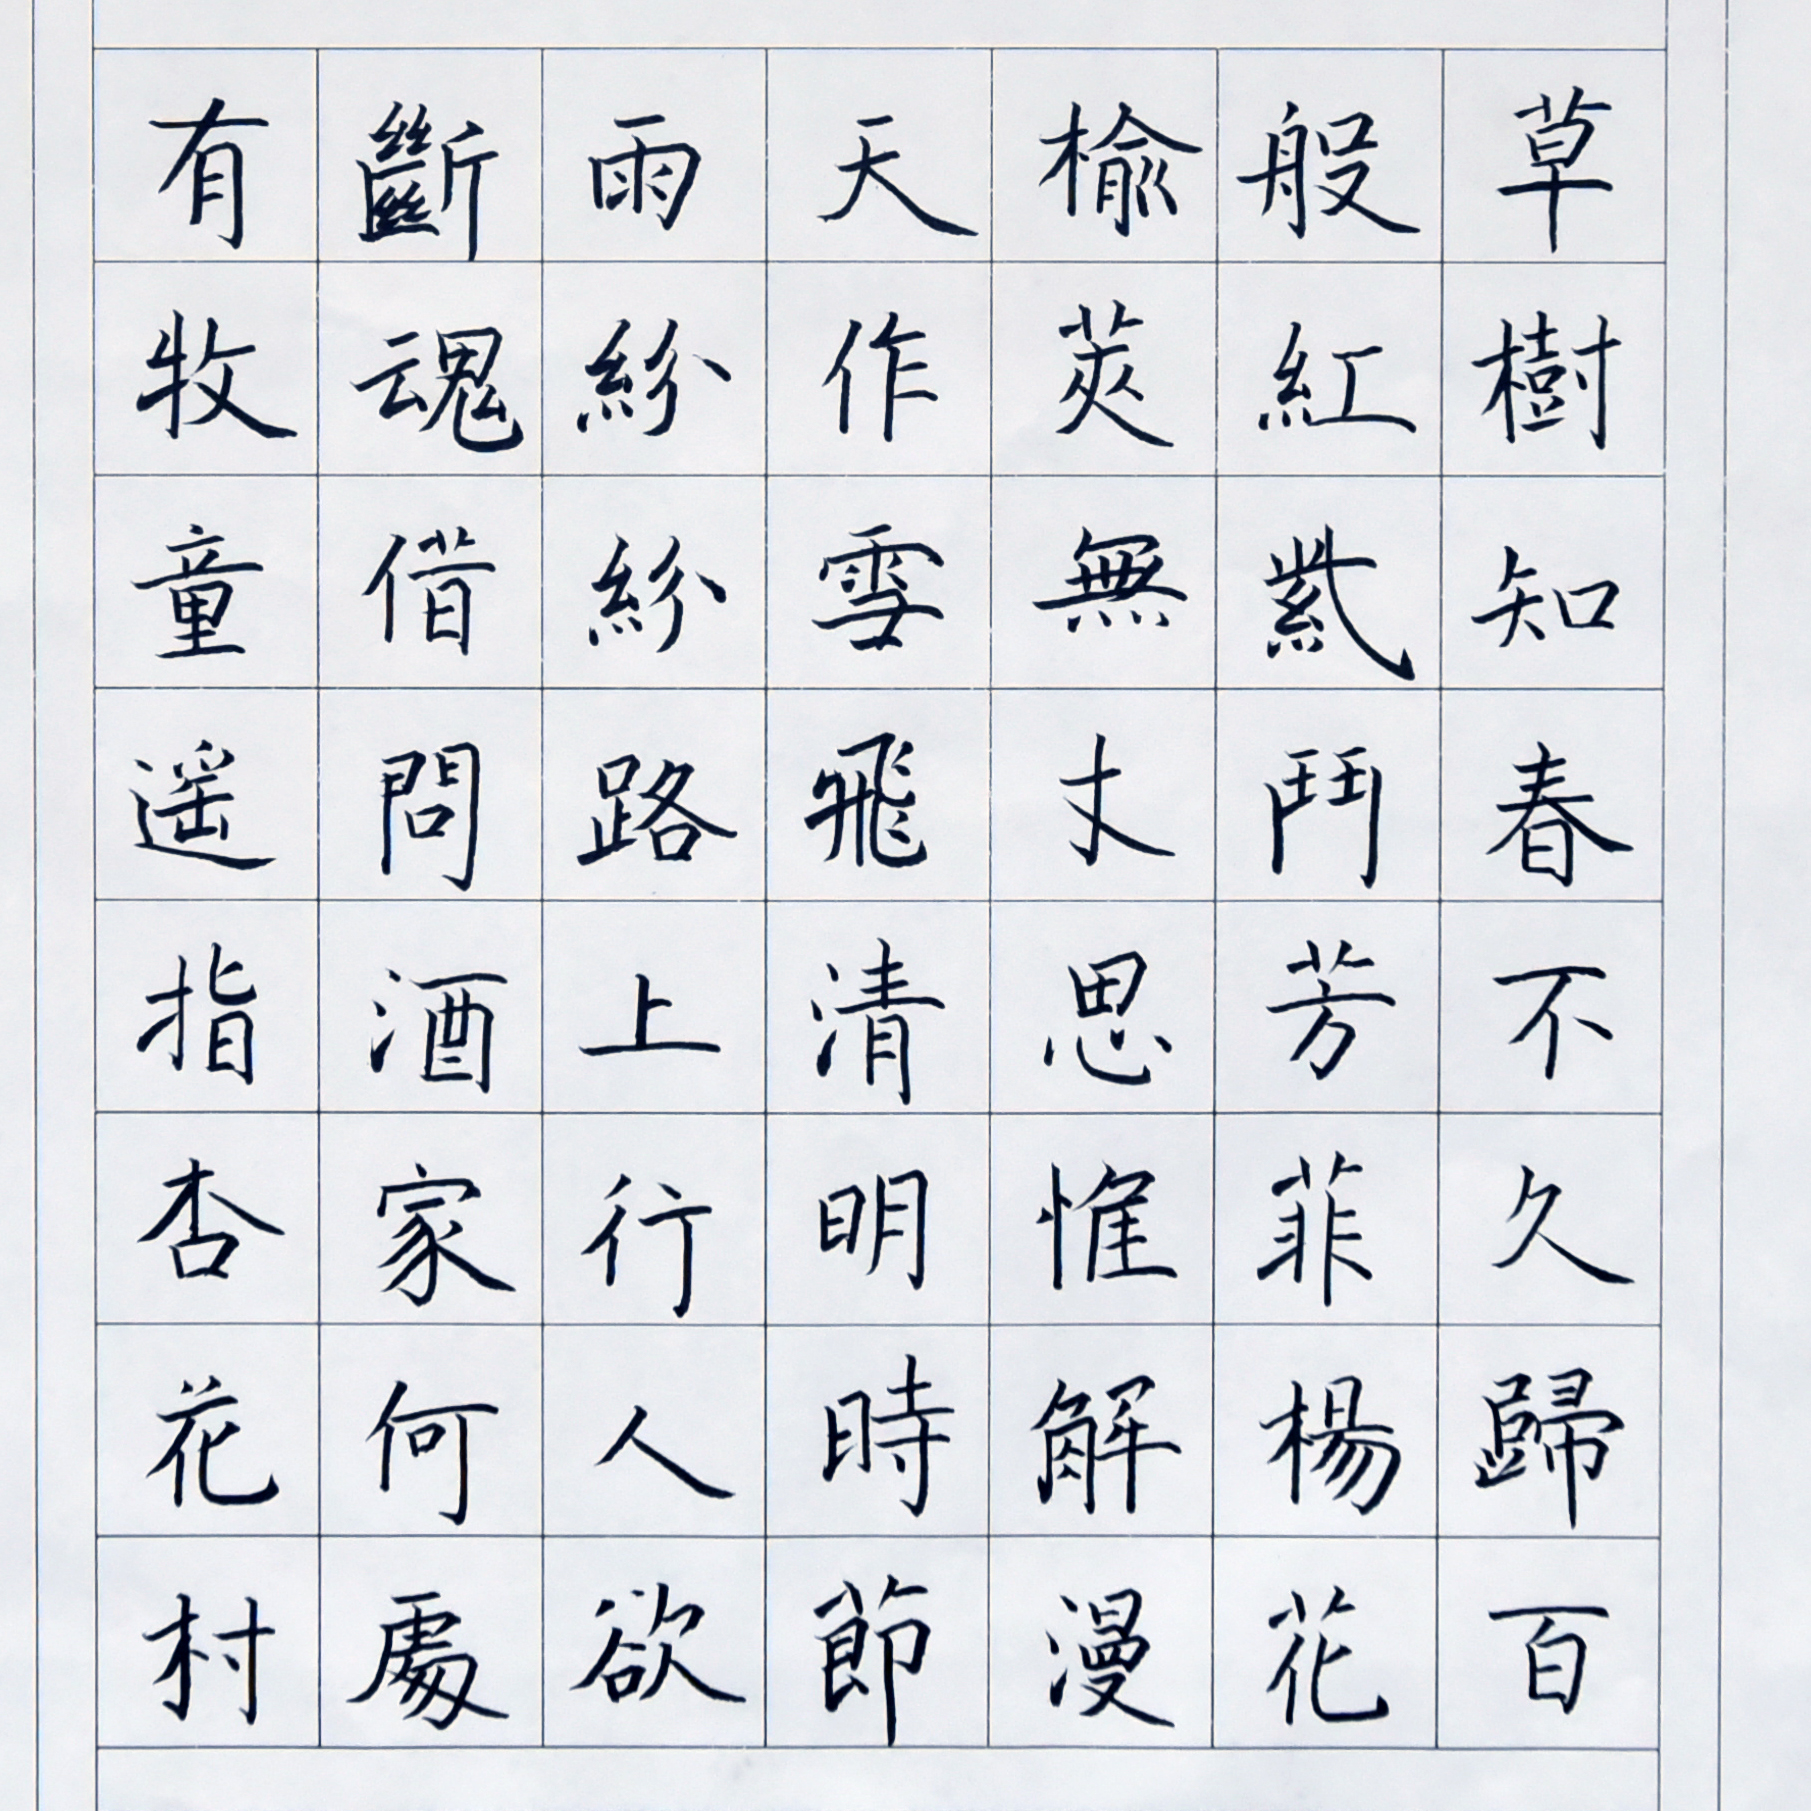 草樹知春不久歸百
般紅紫鬥芳菲楊花
榆莢無才思惟解漫
天作雪飛清明時節
雨紛紛路上行人欲
斷魂借問酒家何處
有牧童遥指杏花村